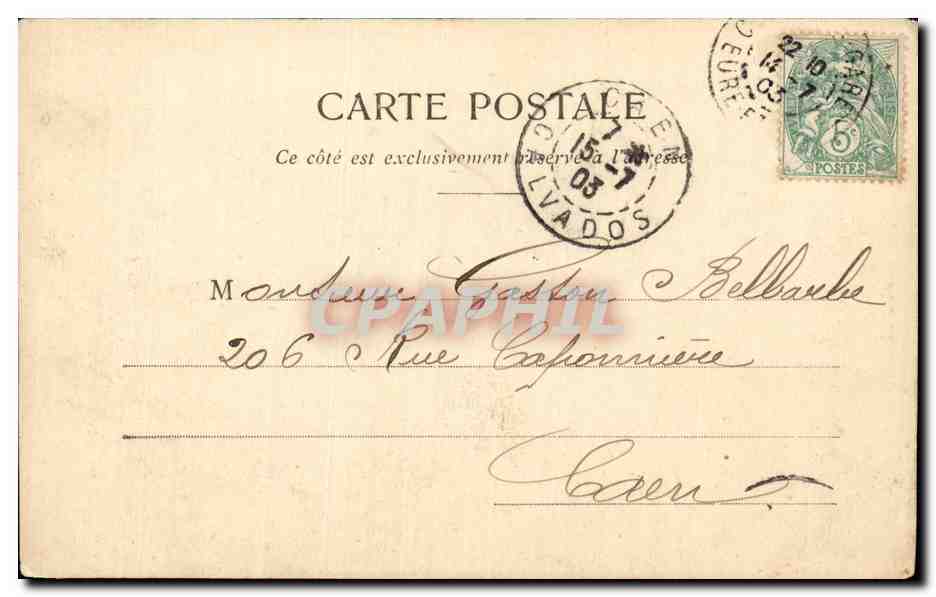 CARTE POSTALE
Ce côté est exclusivement réservé à l'adresse
CAEN
7
15 -7
03
CALVADOS
22 10
14 -7
03
GARE
EURE
5c
POSTES
Monsieur Gaston Bellbarbe
206 Rue Caponnière
Caen
CPAPHIL